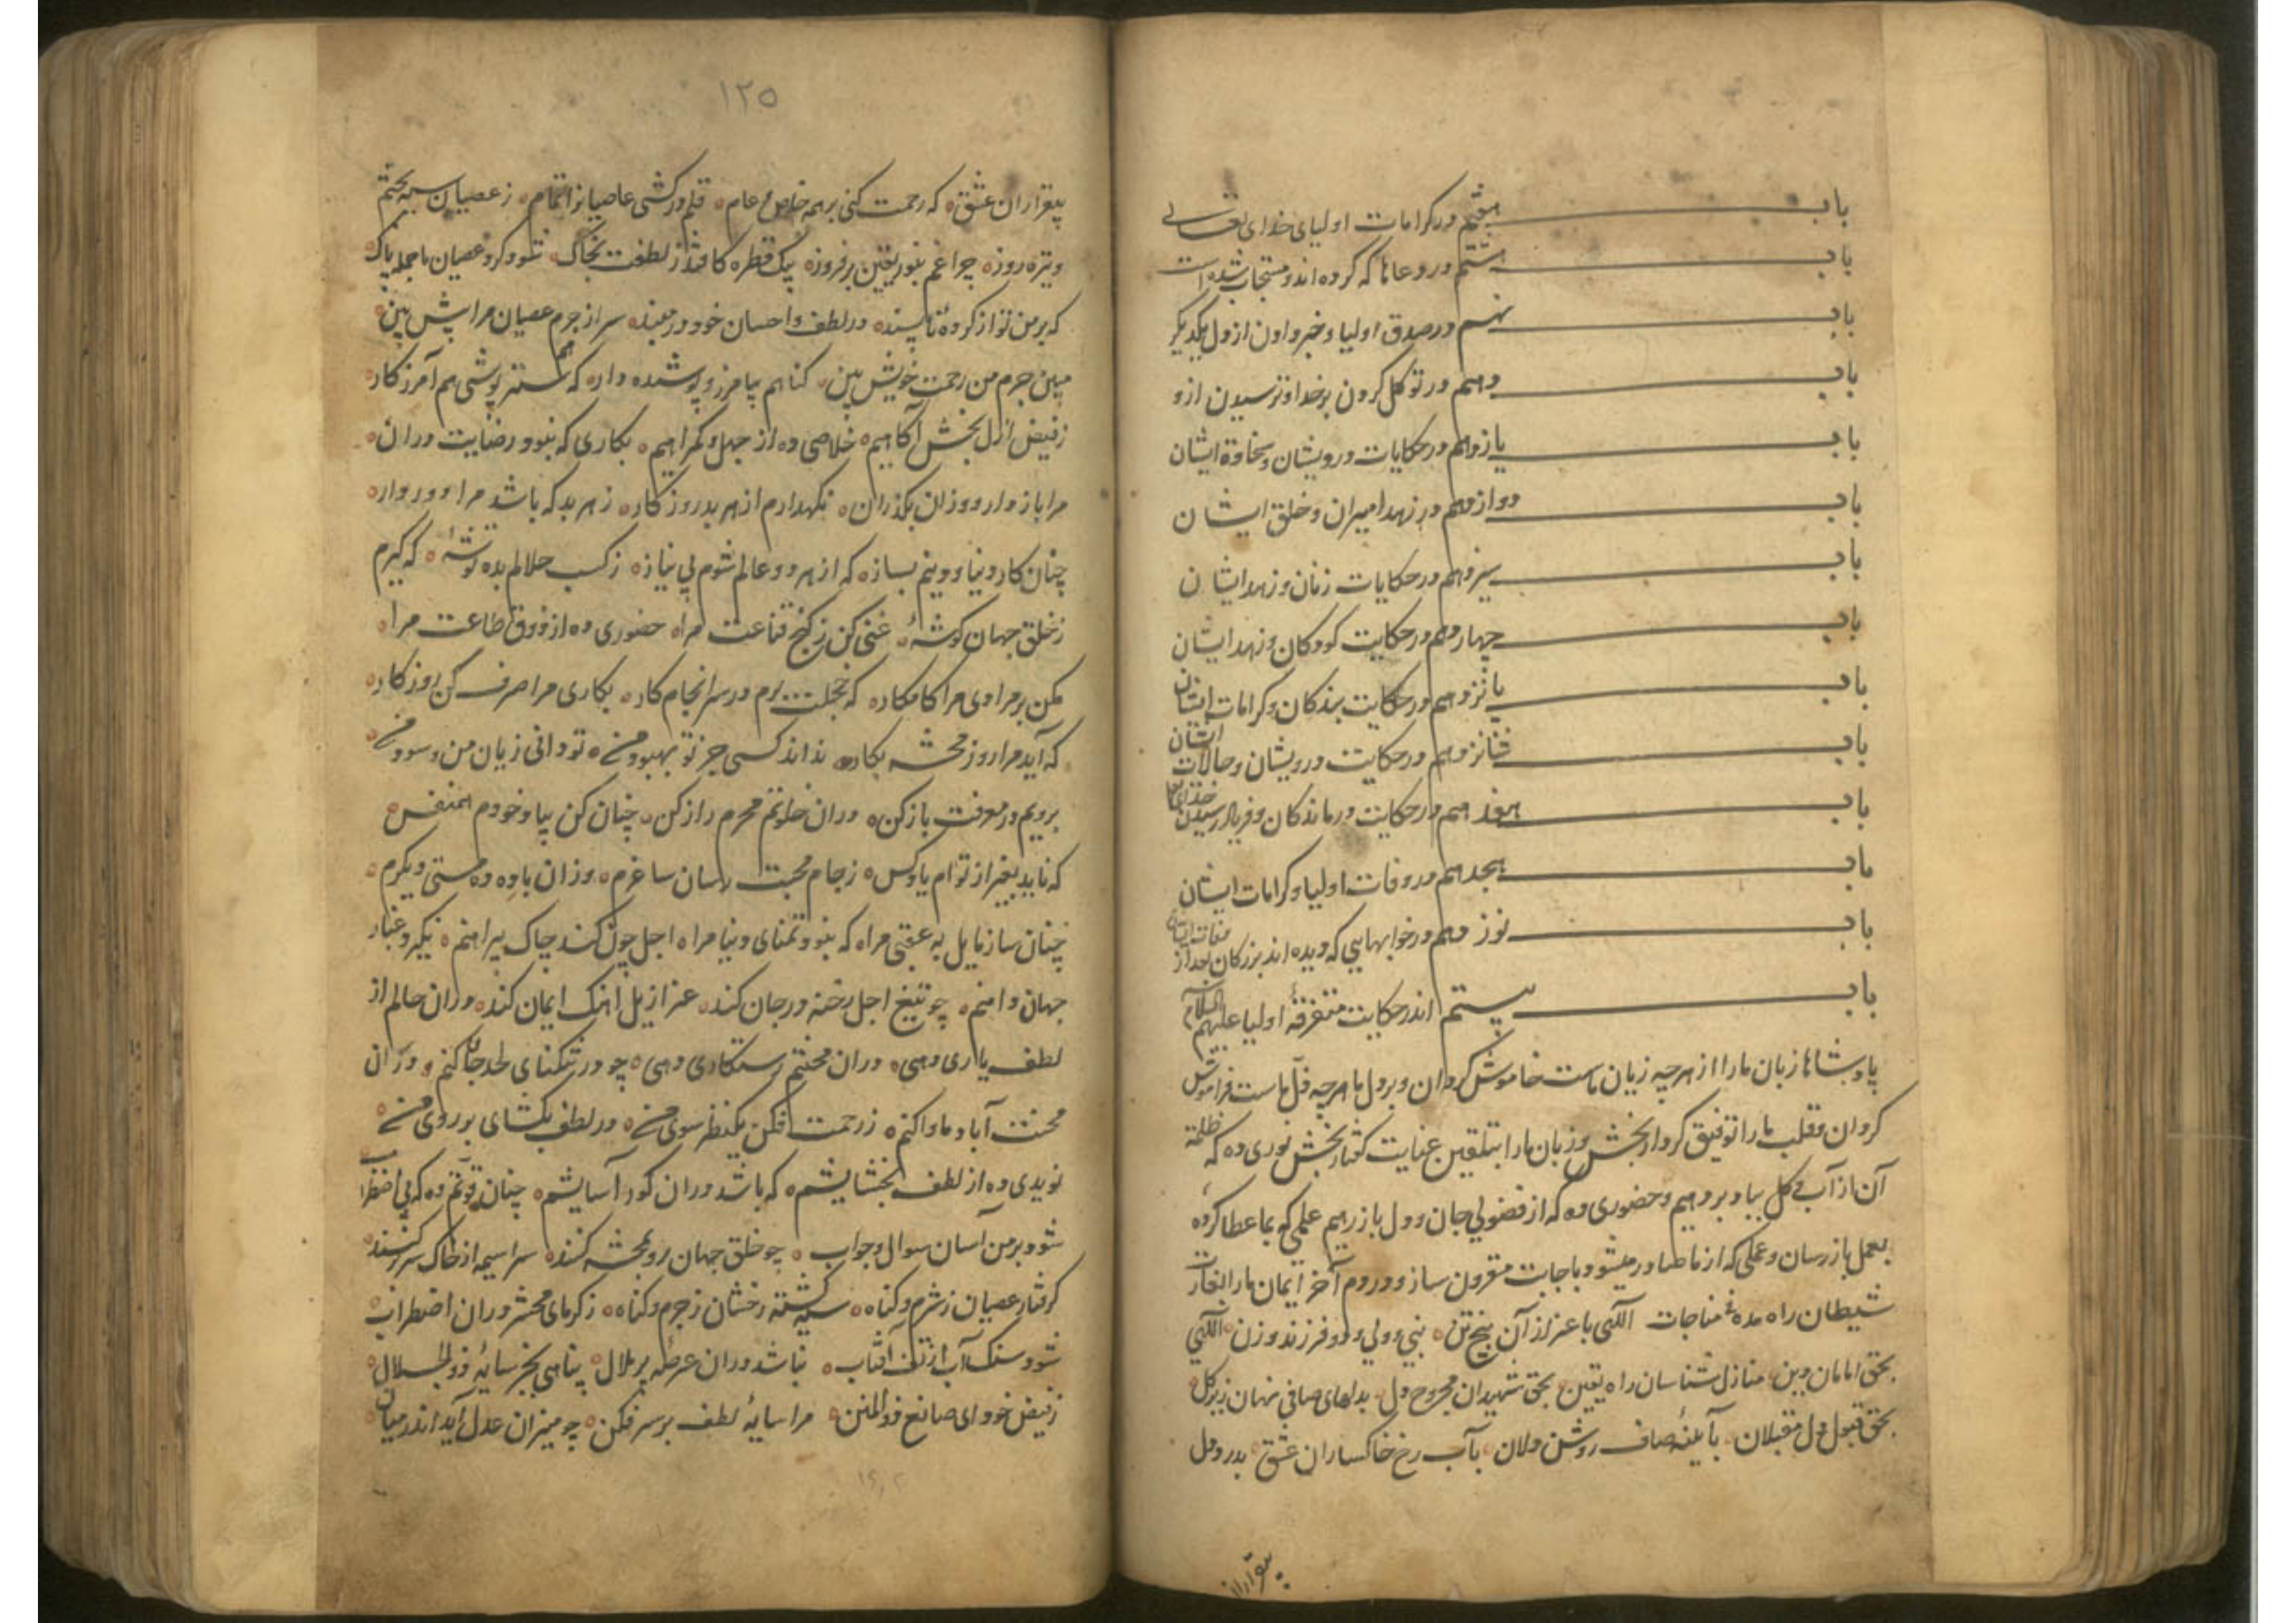 باب هفتم در کرامات اولیای خدای تعالی
باب هشتم در دعاها که کرده اند و مستجاب شده است
باب نهم در صدق اولیا و خبر دادن از دل یکدیگر
باب دهم در توکل کردن بر خدا و ترسیدن ازو
باب یازدهم در حکایات درویشان و سخاوة ایشان
باب دوازدهم در زهد امیران و خلق ایشان
باب سیزدهم در حکایات زنان و زهد ایشان
باب چهاردهم در حکایت کودکان و زهد ایشان
باب پانزدهم در حکایت بندکان و کرامات ایشان
باب شانزدهم در حکایت درویشان و حالات ایشان
باب هفدهم در حکایت درماندکان و فریاد رسیدن خدای تعالی
باب هجدهم در وفات اولیا و کرامات ایشان
باب نوزدهم در خوابهایی که دیده اند بزرکان بعد از وفات ایشان
باب بیستم اندر حکایت متفرقهٔ اولیا علیهم السلام
پادشاها زبان ما را از هرچه زیان ماست خاموش کردان و بر دل ما هرچه ماست فراموش
کردان و قلب ما را توفیق کردار بخش و زبان ما را بتلقین عنایت کفتار بخش نوری ده که ظلمة
آن از آب و کل بیاد بر دهیم و حضوری ده که از فضولی جان و دل باز رهیم علمی که بما عطا کرده
بعمل باز رسان و عملی که از ما صادر میشود باجابت مقرون ساز و در دم آخر ایمان ما را
شیطان راه مده مناجات الکهی باعزاز آن پنج تن نبی و ولی و دو فرزند و زن الکهی
بحق امامان دین منازل شناسان راه یقین بحق شهیدان مجروح دل بدلهای صافی نهان زیر کل
بحق قبول دل مقبلان بآیینهٔ صاف روشن دلان بآب رخ خاکساران عشق بدرد دل
بیقراران
۱۲۵
بیقراران عشق که رحمت کنی بر همه خاص و عام قلم درکشی عاصیانرا تمام ز عصیان سیه بختم
و تیره روز چراغم بنور یقین بر فروز یک قطره کافتد ز لطفت بخاک شود کرد عصیان ما جمله پاک
که بر من تو از کردهٔ ناپسند در لطف و احسان خود در مبند سر از جرم عصیان مرا پیش بین
مبین جرم من رحمت خویش بین کناهم بیامرز و پوشیده دار که هم ستر پوشی هم آمرزکار
ز فیض ازل بخش آکاهیم خلاصی ده از جهل و کمراهیم بکاری که نبود رضایت در آن
مرا باز دار و وزان بکذران نکهدارم از هر بد روزکار ز هر بد که باشد مرا دور دار
چنان کار دنیا و دینم بساز که از هر دو عالم شوم بی نیاز ز کسب حلالم بده توشهٔ که کیرم
ز خلق جهان کوشهٔ غنی کن ز کنج قناعت مرا حضوری ده از ذوق طاعت مرا
مکن بر مرادی مرا کامکار که خجلت ... برم در سرانجام کار بکاری مرا صرف کن روزکار
که آید مرا روز محشر بکار نداند کسی جز تو بهبود من تو دانی زیان من و سود من
برویم در معرفت باز کن در آن خلوتم محرم راز کن چنان کن بیاد خودم همنفس
که ناید بغیر از توام یاد کس ز جام محبت رسان ساغرم وزان باده ده مستی دیکرم
چنان ساز مایل به عقبی مرا که نبود تمنای دنیا مرا اجل چون کند چاک پیراهنم نکیرد غبار
جهان دامنم چو تیغ اجل رخنه در جان کند عزازیل اهنک ایمان کند در آن حالم از
لطف یاری دهی در آن محنتم رستکاری دهی چو در تنکنای لحد جا کنم در آن
محنت آباد ماوا کنم ز رحمت فکن یکنظر سوی من در لطف بکشای بر روی من
نویدی ده از لطف بخشایشم که باشد در آن کور آسایشم چنان قوتم ده که بی اضطراب
شود بر من آسان سوال و جواب چو خلق جهان رو بمحشر کنند سراسیمه از خاک سر بر کنند
کرفتار عصیان ز شرم و کناه سیه کشته رخشان ز جرم و کناه ز کرمای محشر در آن اضطراب
شود سنک آب از تف آفتاب نباشد در آن عرصه پر ملال پناهی بجز سایهٔ ذو الجلال
ز فیض خود ای صانع ذو المنن مرا سایهٔ لطف بر سر فکن چو میزان عدل آید اندر میان